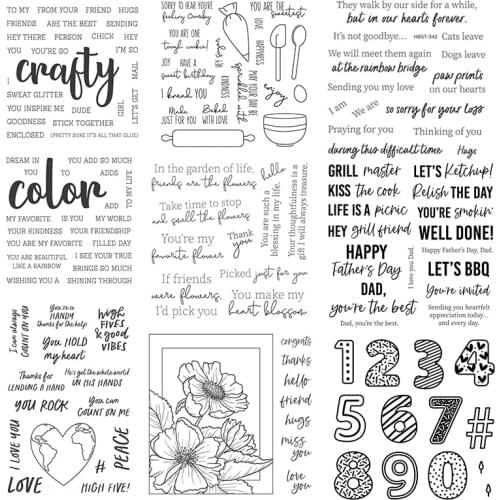 TO MY FROM YOUR FRIEND HUGS
FRIENDS ARE THE BEST SENDING
HEY THERE PERSON CHICK HEY
YOU YOU'RE SO I'M SO
crafty
MAIL
I
SWEAT GLITTER
YOU INSPIRE ME DUDE
GOODNESS STICK TOGETHER
GIRL
LET'S GET
ENCLOSED (PRETTY SURE IT'S ALL THAT GLUE)
SORRY TO HEAR YOU'RE
feeling Crumby
YOU ARE ONE
tough cookie!
JOY HAVE A
sweet birthday
I knead YOU
Made Baked
JUST FOR YOU WITH LOVE
YOU ARE THE
sweetest
LOVE
HAPPINESS
HUGS
KINDNESS
MAY YOUR DAY BE
sprinkled with
enjoy
They walk by our side for a while,
but in our hearts forever.
It's not goodbye... HBST-342 Cats leave
We will meet them again Dogs leave
at the rainbow bridge paw prints
Sending you my love on our hearts
I am We are so sorry for your loss
Praying for you Thinking of you
during this difficult time Hugs
DREAM IN YOU ADD SO MUCH
YOU TO ADDS
color
ADD
TO MY LIFE
MY FAVORITE IS YOU MY WORLD
YOUR KINDNESS YOUR FRIENDSHIP
YOU ARE MY FAVORITE FILLED DAY
YOU ARE BEAUTIFUL I SEE YOUR TRUE
LIKE A RAINBOW BRINGS SO MUCH
WISHING YOU A SHINING THROUGH
In the garden of life,
friends are the flowers.
hello
Take time to stop
and smell the flowers
You're my
favorite flower
Thank
you
You are such a
blessing in my life.
Your thoughtfulness is a
gift I will always treasure.
If friends
were flowers,
I'd pick you
Picked just for you
You make my
heart blossom
GRILL master
KISS the cook
LIFE IS A picnic
HEY grill friend
HAPPY
Father's Day
DAD,
you're the best
Dad, you're the best.
I love you Dad.
LET'S Ketchup!
Relish THE DAY
YOU'RE smokin'
WELL DONE!
Happy Father's Day, Dad.
LET'S BBQ
You're invited
Sending you heartfelt
appreciation today...
and every day.
I can always
COUNT ON YOU
You're so
HANDY
Thanks for the help
high
FIVES
& good
VIBES
You HOLD
my heart
Thanks for
LENDING A HAND
He's got the whole world
IN HIS HANDS
YOU ROCK
You can
COUNT ON ME
I LOVE YOU
# PEACE
LOVE
HIGH FIVE!
congrats
thanks
hello
friend
hugs
miss
you
love
you
1234
567#
890